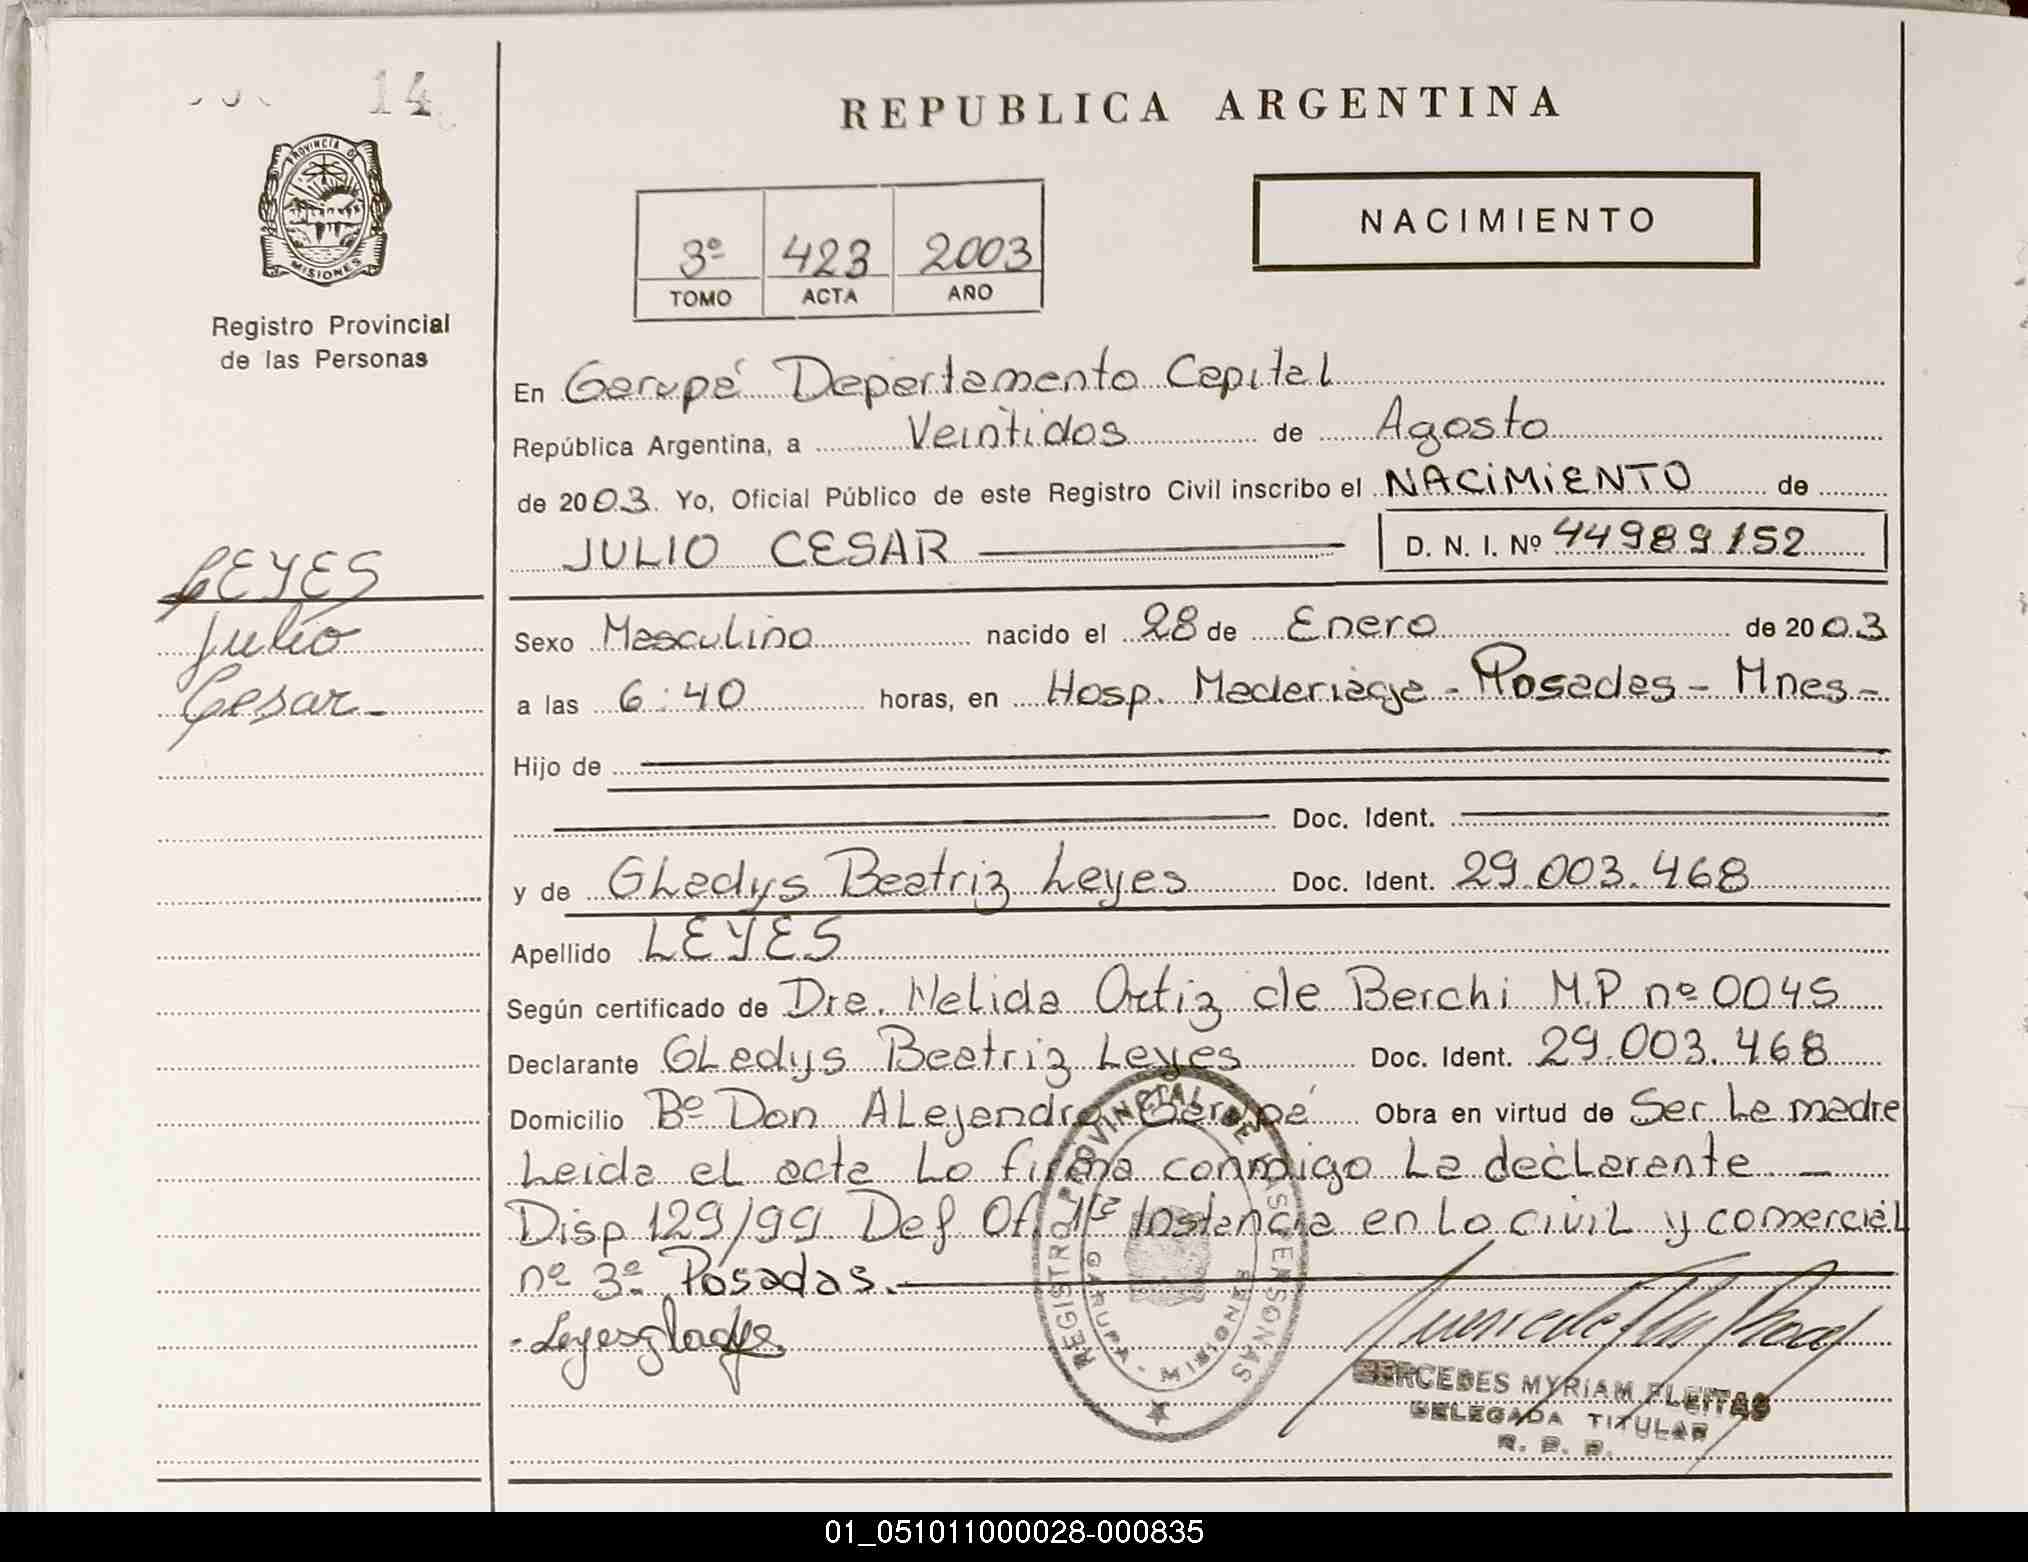 14
REPUBLICA ARGENTINA
PROVINCIA D
MISIONES
Registro Provincial
de las Personas
NACIMIENTO
3º 423 2003
TOMO ACTA AÑO
En Garupá Departamento Capital
República Argentina, a Veintidos de Agosto
de 2003. Yo, Oficial Público de este Registro Civil inscribo el NACIMIENTO de
JULIO CESAR D. N. I. Nº 44989152
LEYES
Julio
Cesar -
Sexo Masculino nacido el 28 de Enero de 2003
a las 6:40 horas, en Hosp. Madariaga - Posadas - Mnes -
Hijo de
Doc. Ident.
y de Gladys Beatriz Leyes Doc. Ident. 29.003.468
Apellido LEYES
Según certificado de Dra. Nelida Ortiz de Berchi M.P nº 0045
Declarante Gladys Beatriz Leyes Doc. Ident. 29.003.468
Domicilio Bº Don Alejandro Garupá Obra en virtud de Ser la madre
Leida el acta lo firma conmigo la declarante —
Disp 129/99 Def Of. 1ra Instancia en lo civil y comercial
nº 3º Posadas.
- Leyes gladys
REGISTRO PROVINCIAL DE LAS PERSONAS
GARUPA - MISIONES
MERCEDES MYRIAM FLEITAS
DELEGADA TITULAR
R. P. P.
01_051011000028-000835